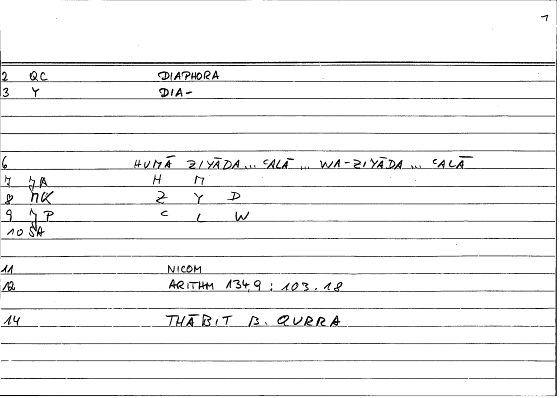 1
2 QC DIAPHORA
3 Y DIA-
6 HUMĀ ZIYĀDA... ʿALĀ ... WA-ZIYĀDA ... ʿALĀ
7 JA H M
8 MK Z Y D
9 JP C L W
10 SA
11 NICOM
12 ARITHM 134,9 : 103.18
14 THĀBIT B. QURRA